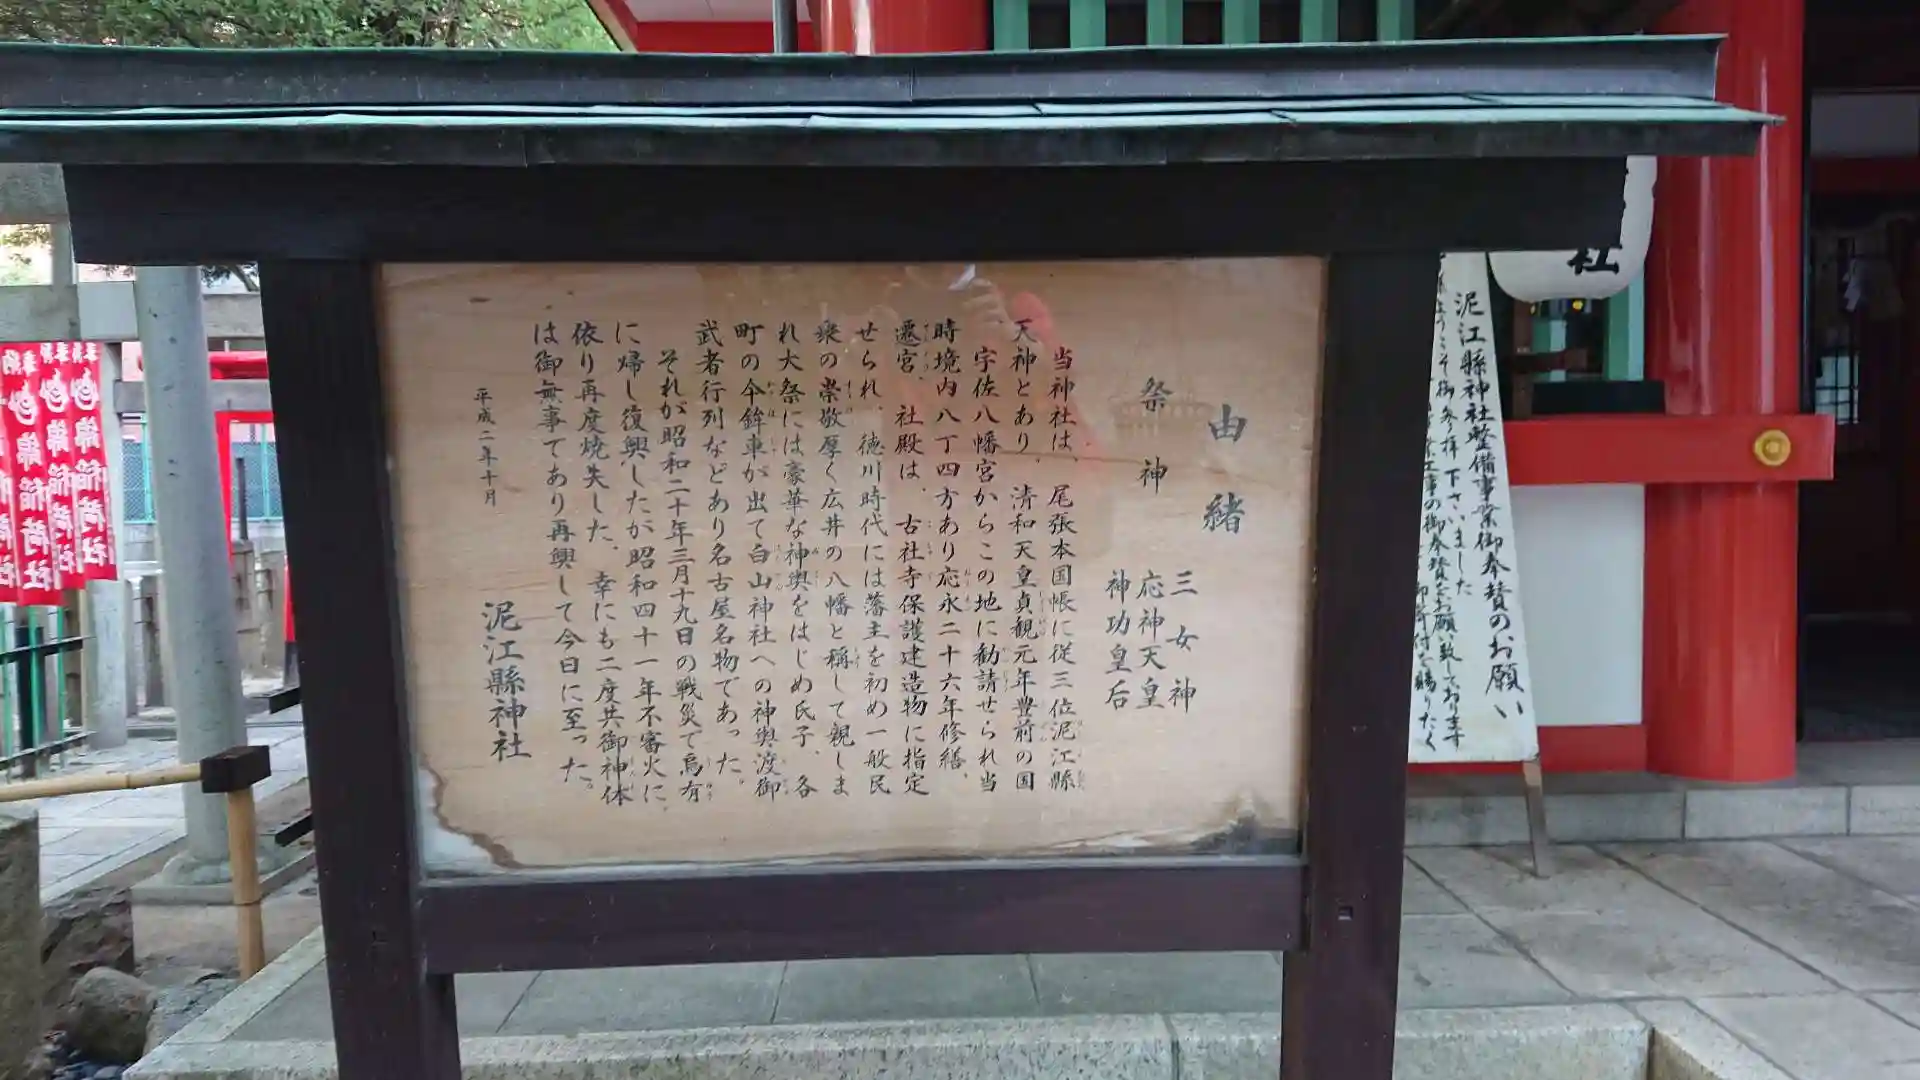 由緒
祭神
三女神
応神天皇
神功皇后
当神社は、尾張本国帳に従三位泥江縣
天神とあり。清和天皇貞観元年豊前の国
宇佐八幡宮からこの地に勧請せられ当
時境内八丁四方あり応永二十六年修繕、
遷宮、社殿は、古社寺保護建造物に指定
せられ、徳川時代には藩主を初め一般民
衆の崇敬厚く広井の八幡と稱して親しま
れ大祭には豪華な神輿をはじめ氏子、各
町の傘鉾車が出て白山神社への神輿渡御
武者行列などあり名古屋名物であった。
それが昭和二十年三月十九日の戦災で烏有
に帰し復興したが昭和四十一年不審火に
依り再度焼失した、幸にも二度共御神体
は御無事であり再興して今日に至った。
平成二年十月
泥江縣神社
社
泥江縣神社整備事業御奉賛のお願い
ようこそ御参拝下さいました
工事の御奉賛をお願い致しております
御寄付を賜りたく
奉納
錦稲荷社
錦稲荷社
錦稲荷社